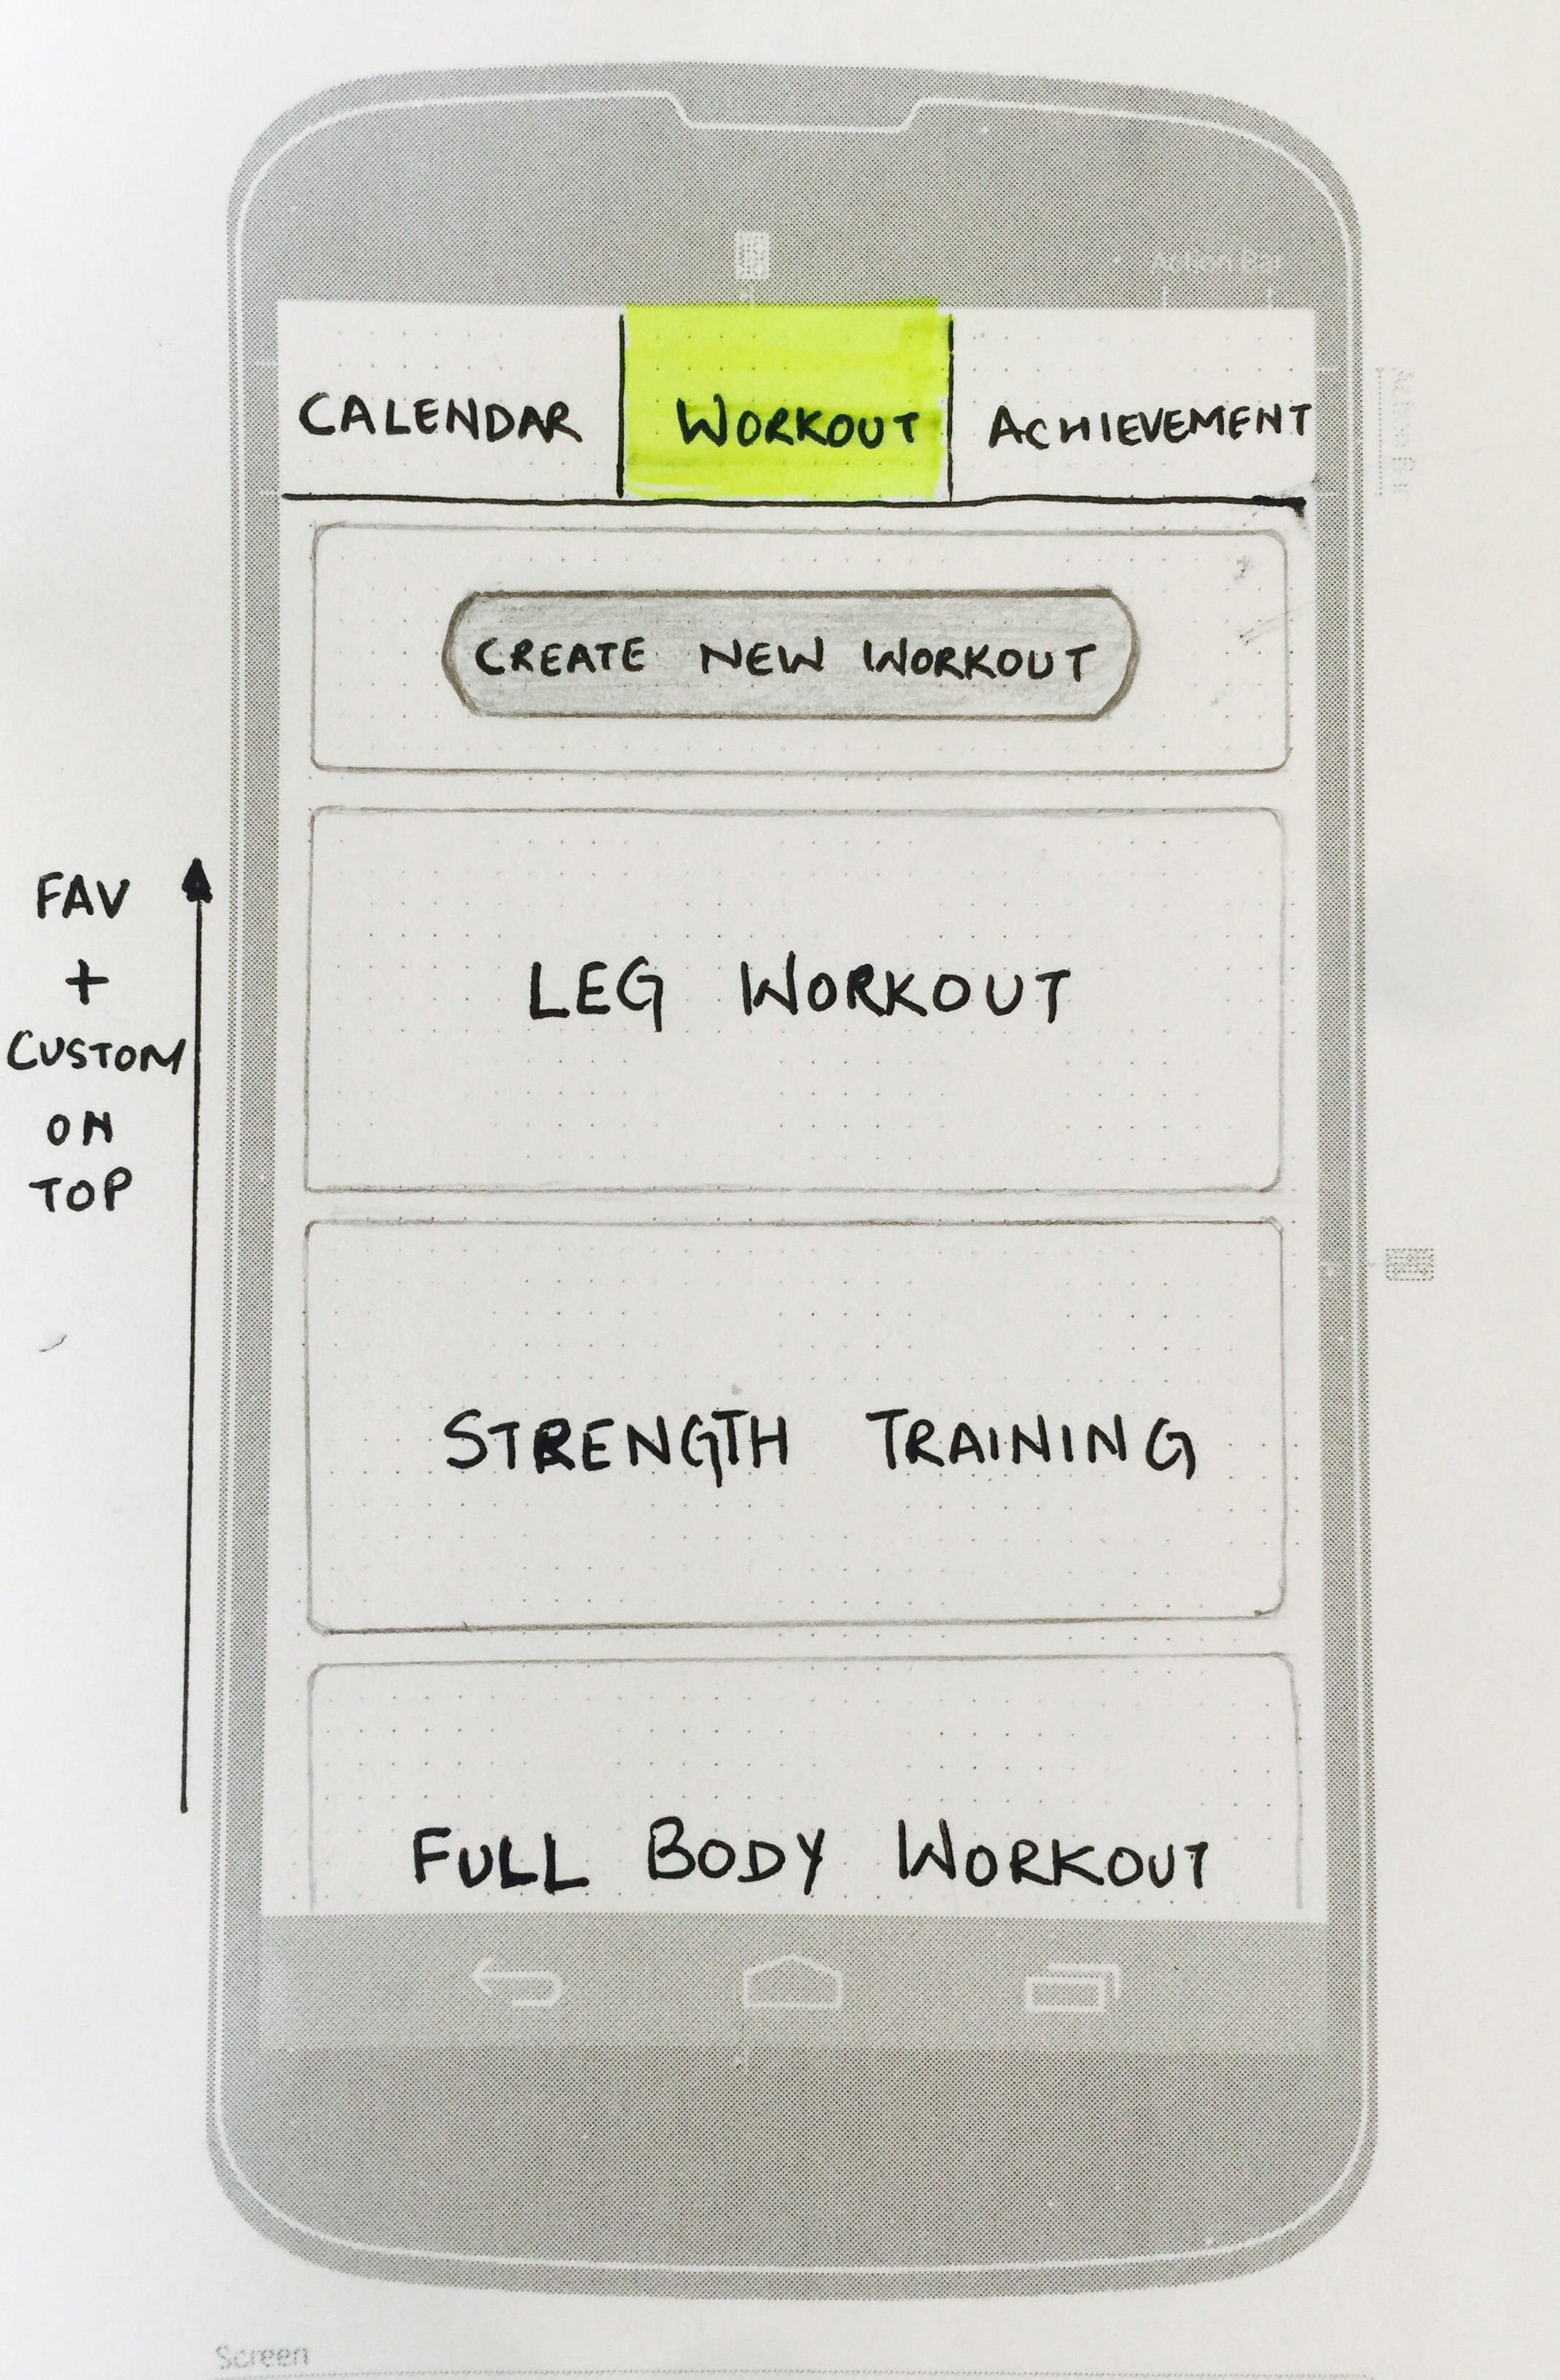 Action Bar
CALENDAR WORKOUT ACHIEVEMENT
CREATE NEW WORKOUT
FAV
+
CUSTOM
ON
TOP
LEG WORKOUT
STRENGTH TRAINING
FULL BODY WORKOUT
Screen